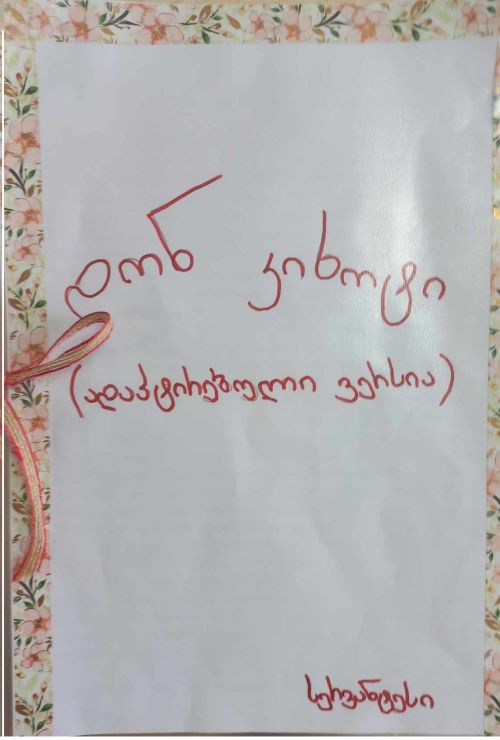 დონ კიხოტი
(ადაპტირებული ვერსია)
სერვანტესი